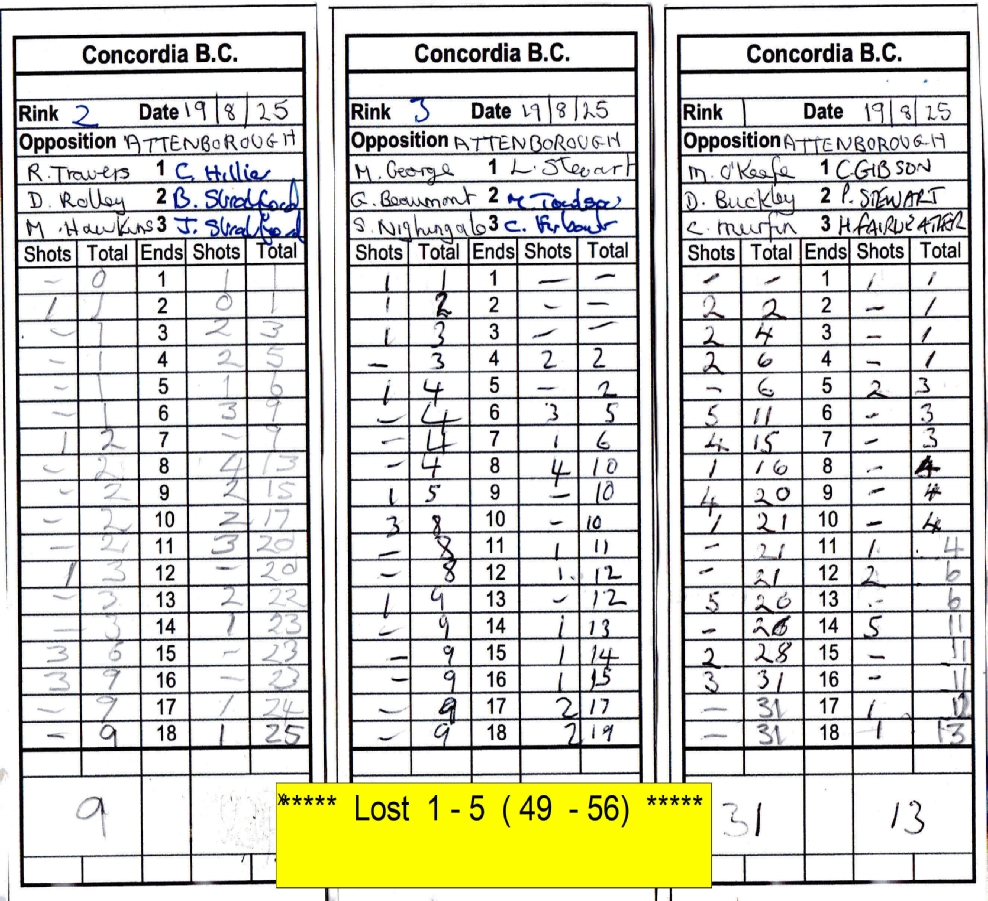 Concordia B.C.
Rink 2 Date 19/8/25
Opposition ATTENBOROUGH
R. Travers 1 C. Hillier
D. Rolley 2 B. Stradford
M. Hawkins 3 J. Stradford
Shots Total Ends Shots Total
- 0 1 1 1
1 1 2 0 1
- 1 3 2 3
- 1 4 2 5
- 1 5 1 6
- 1 6 3 9
1 2 7 - 9
- 2 8 4 13
- 2 9 2 15
- 2 10 2 17
- 2 11 3 20
1 3 12 - 20
- 3 13 2 22
- 3 14 1 23
3 6 15 - 23
3 9 16 - 23
- 9 17 1 24
- 9 18 1 25
9
Concordia B.C.
Rink 3 Date 19/8/25
Opposition ATTENBOROUGH
M. George 1 L. Stewart
G. Beaumont 2
S. Nighingale 3 C.
Shots Total Ends Shots Total
1 1 1 - -
1 2 2 - -
1 3 3 - -
- 3 4 2 2
1 4 5 - 2
- 4 6 3 5
- 4 7 1 6
- 4 8 4 10
1 5 9 - 10
3 8 10 - 10
- 8 11 1 11
- 8 12 1. 12
1 9 13 - 12
- 9 14 1 13
- 9 15 1 14
- 9 16 1 15
- 9 17 2 17
- 9 18 2 19
***** Lost 1 - 5 ( 49 - 56) *****
Concordia B.C.
Rink Date 19/8/25
Opposition ATTENBOROUGH
M. O'Keefe 1 C GIBSON
D. Buckley 2 P. STEWART
C. Murfin 3 H. FAIRWEATHER
Shots Total Ends Shots Total
- - 1 1 1
2 2 2 - 1
2 4 3 - 1
2 6 4 - 1
- 6 5 2 3
5 11 6 - 3
4 15 7 - 3
1 16 8 - 4
4 20 9 - 4
1 21 10 - 4
- 21 11 1. 4
- 21 12 2 6
5 26 13 - 6
- 26 14 5 11
2 28 15 - 11
3 31 16 - 11
- 31 17 1 12
- 31 18 1 13
31 13